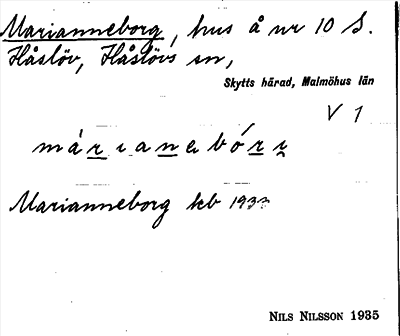 Marianneborg, hus å nr 10 S.
Håslöv, Håslövs sn,
Skytts härad, Malmöhus län
V 1
Marianneborg kb 193
NILS NILSSON 1935